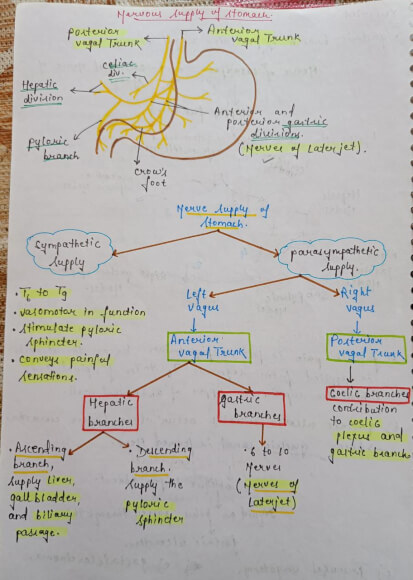 Nervous supply of Stomach.
Posterior
vagal Trunk
Anterior
vagal Trunk
Celiac
div.
Hepatic
division
Anterior and
posterior gastric
divisions.
(Nerves of Laterjet).
Pyloric
branch
Crow's
foot
Nerve supply of
Stomach.
Sympathetic
supply
parasympathetic
supply.
• T6 to T9
• vasomotor in function
• stimulate pyloric
sphincter.
• Conveys painful
sensations.
Left
vagus
Right
vagus
Anterior
vagal Trunk
Posterior
vagal Trunk
Hepatic
branches
Gastric
branches
Coelic branches
contribution
to coelic
plexus and
gastric branch
• Ascending
branch,
supply liver,
gall bladder,
and biliary
passage.
• Descending
branch.
supply the
pyloric
sphincter
• 6 to 10
Nerves
(Nerves of
Laterjet)